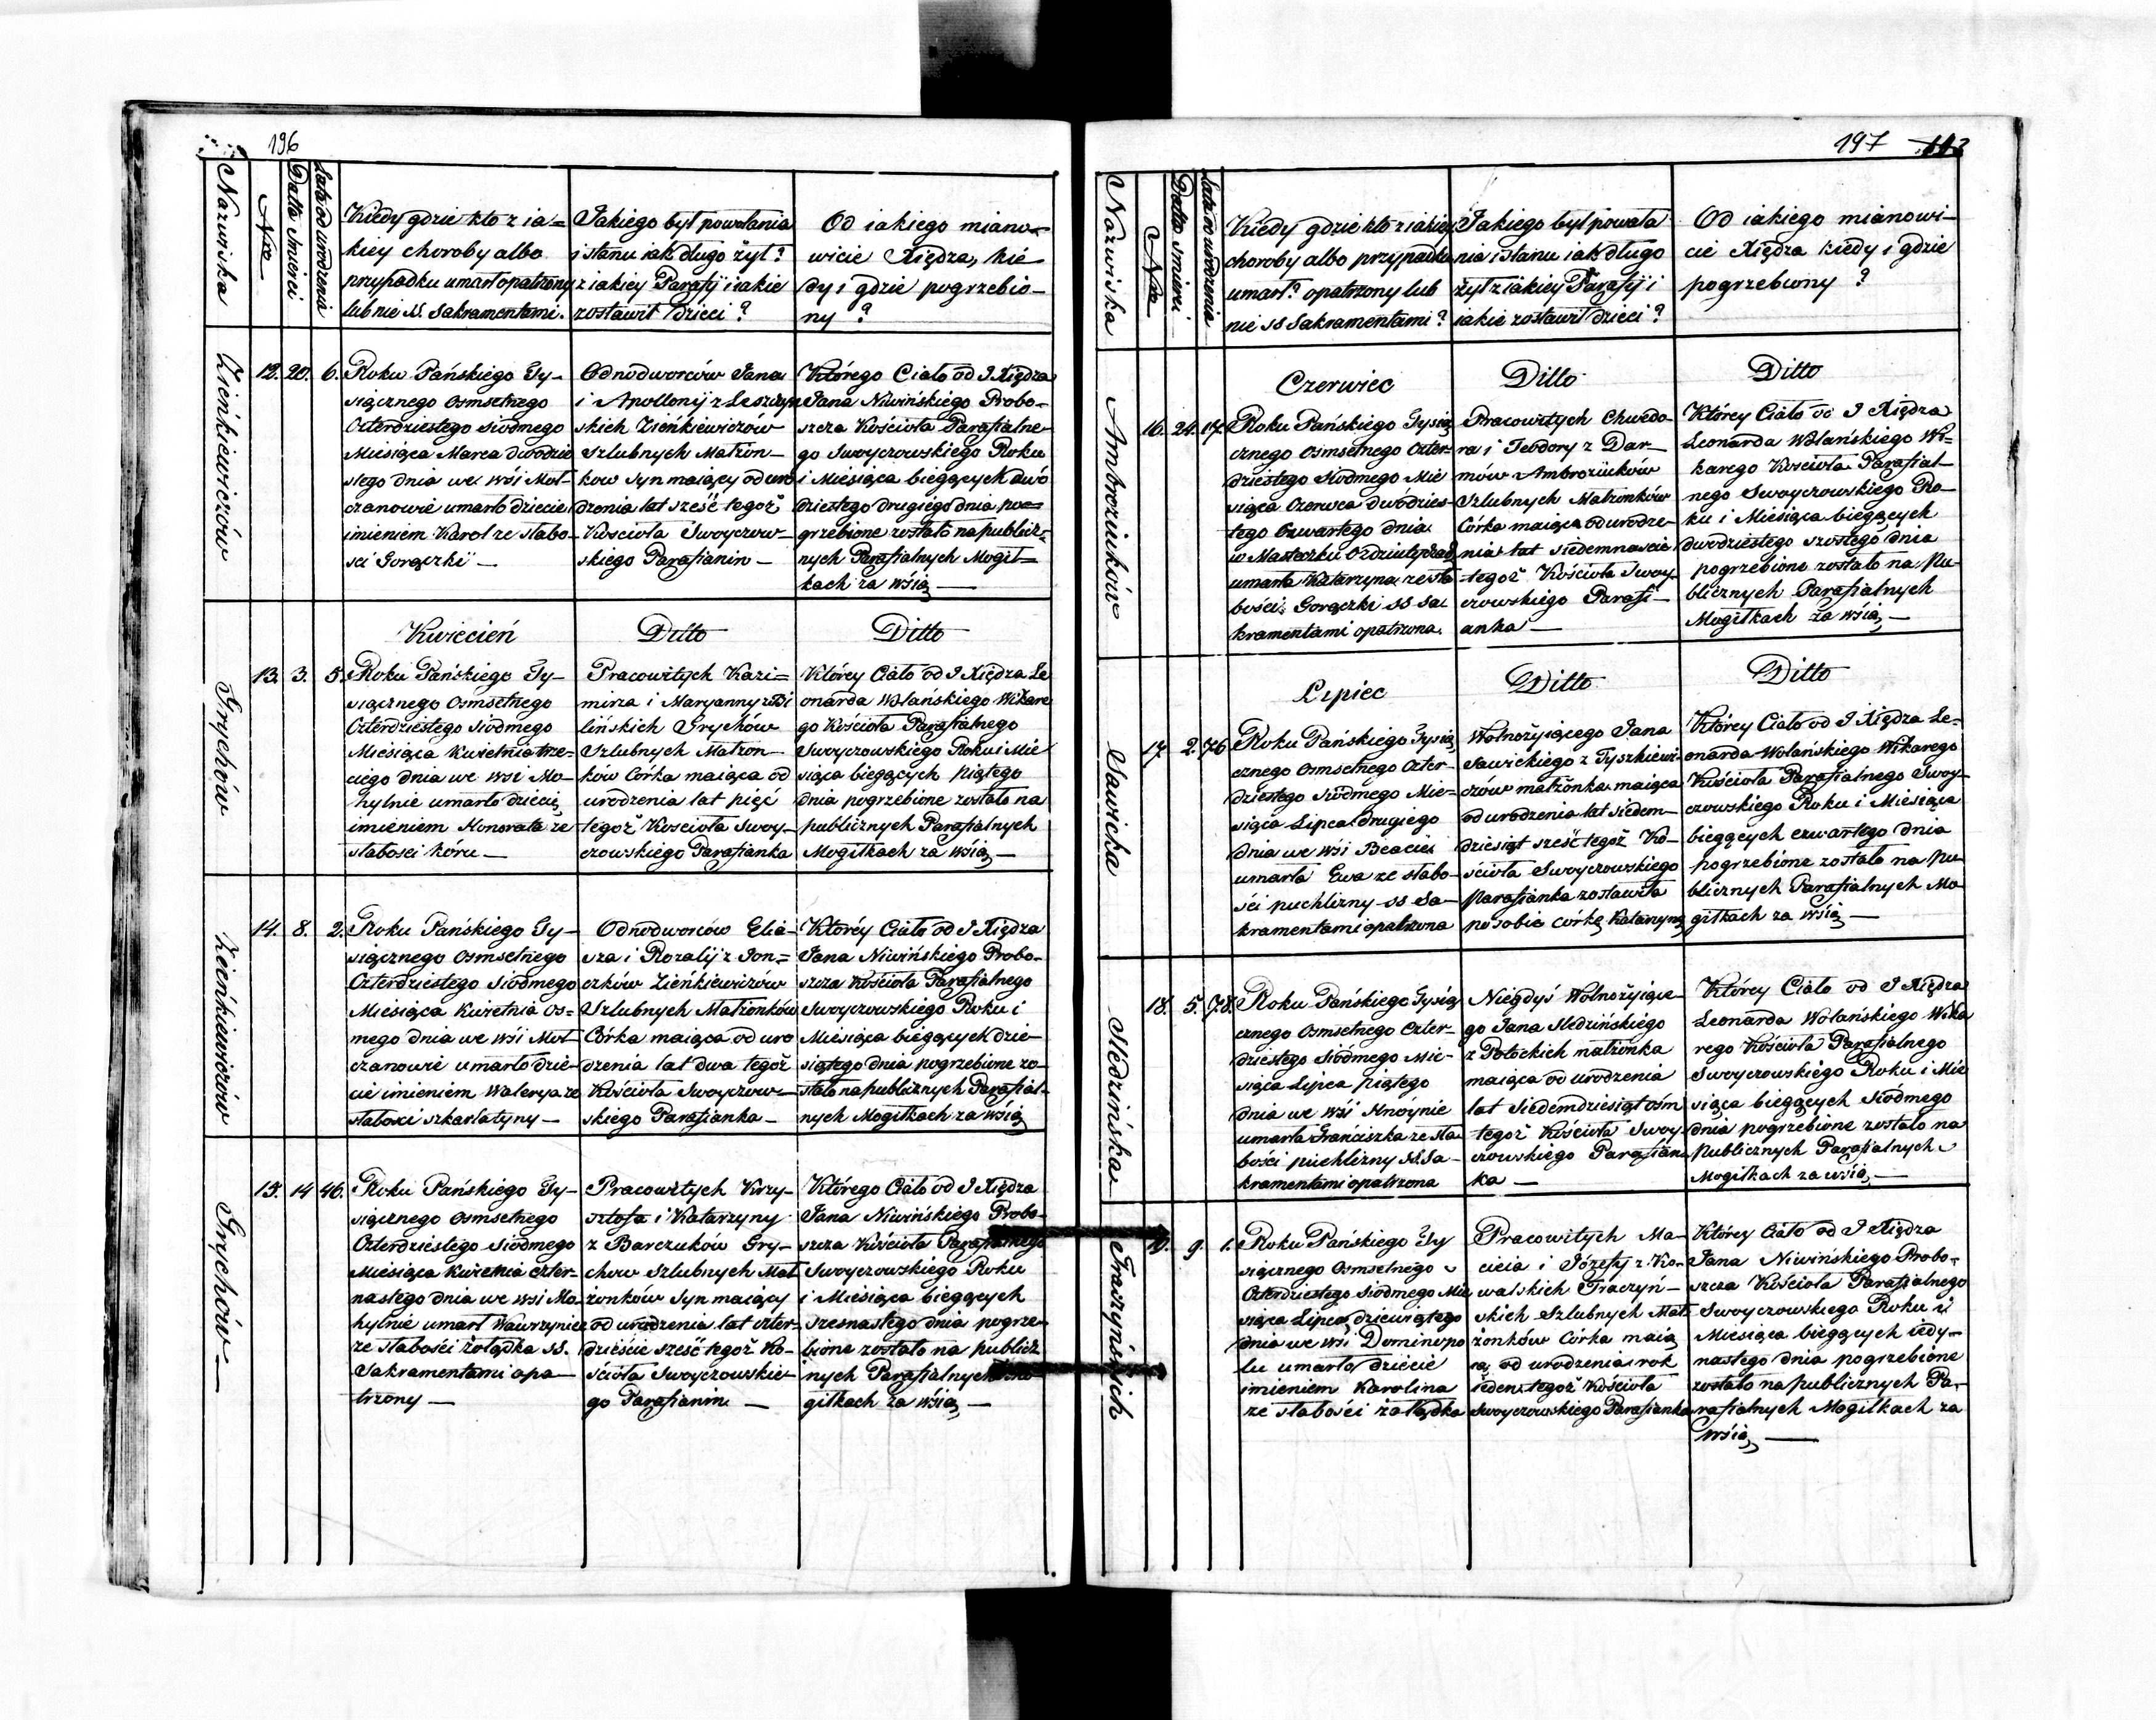 196
Nazwiska
Nro
Datta śmierci
Lata od urodzenia
Kiedy gdzie kto z ia=
kiey choroby albo
przypadku umarł opatrzony
lub nie SS. Sakramentami.
Jakiego był powołania
i stanu iak długo żył?
z iakiey Parafij i iakie
zostawił Dzieci?
Od iakiego miano=
wicie Xiędza, kie
dy i gdzie pogrzebio-
ny?
Zieńkiewiczów
12. 20. 6.
Roku Pańskiego Ty-
siącznego Osmsetnego
Czterdziestego Siodmego
Miesiąca Marca dwódzie
stego dnia we wśi Moł-
czanowie umarło dziecie
imieniem Karol ze słabo-
sci Gorączki —
Odnodworców Jana
i Apollonij z Leszczyń
skich Zieńkiewiczów
Szlubnych Małżon-
kow Syn maiący od uro
dzenia lat sześć tegoż
Kościoła Swoyczow-
skiego Parafianin —
Którego Ciało od J Xiędza
Jana Niwińskiego Probo-
szcza Kościoła Parafialne-
go Swoyczowskiego Roku
i Miesiąca bieгących dwó
dziestego drugiego dnia po=
grzebione zostało na publicz-
nych Parafialnych Mogił=
kach za wśią —
Grychów
Kwiecień
Ditto
Ditto
13. 3. 5.
Roku Pańskiego Ty-
siącznego Osmsetnego
Czterdziestego Siodmego
Miesiąca Kwietnia trze-
ciego dnia we wsi Mo-
hylnie umarło dziecię
imieniem Honorata ze
słabosci kóru —
Pracowitych Kazi=
mirza i Maryanny z Bi
lińskich Grychów
Szlubnych Małżon-
ków Córka maiąca od
urodzenia lat pięć
tegoż Kosciola Swoy-
czowskiego Parafianka
Którey Ciało od J Xiędza Le
onarda Wolańskiego Wikare
go Kościoła Parafialnego
Swoyczowskiego Roku i Mie
siąca biegących piątego
dnia pogrzebione zostało na
publicznych Parafialnych
Mogiłkach za wśią —
Zieńkiewiczów
14. 8. 2.
Roku Pańskiego Ty-
siącznego Osmsetnego
Czterdziestego Siodmego
Miesiąca Kwietnia os=
mego dnia we wśi Moł-
czanowie umarło dzie-
cie imieniem Walerya ze
słabosci szkarlatyny —
Odnodworców Elia-
sza i Rozalij z Jon=
czków Zieńkiewiczów
Szlubnych Małżonków
Córka maiąca od uro
dzenia lat dwa tegoż
Kościoła Swoyczow-
skiego Parafianka —
Którey Ciało od J Xiędza
Jana Niwińskiego Probo-
szcza Kościoła Parafialnego
Swoyczowskiego Roku i
Miesiąca biegących dzie-
siątego dnia pogrzebione zo-
stało na publicznych Parafial-
nych Mogiłkach za wśią
Grychów
15. 14 46.
Roku Pańskiego Ty-
siącznego Osmsetnego
Czterdziestego Siodmego
Miesiąca Kwietnia czter-
nastego dnia we wsi Mo
hylnie umarł Wawrzyniec
ze słabości żołądka SS.
Sakramentami opa-
trzony —
Pracowitych Krzy-
sztofa i Katarzyny
z Barczuków Gry-
chow Szlubnych Mał
żonkow Syn maiący
od urodzenia lat czter-
dzieście sześć tegoż Ko-
ścioła Swoyczowskie-
go Parafianin —
Którego Ciało od J Xiędza
Jana Niwińskiego Probo-
szcza Kościoła Parafialnego
Swoyczowskiego Roku
i Miesiąca biegących
szesnastego dnia pogrze-
bione zostało na publicz
nych Parafialnych Mo-
giłkach za wśią —
197 113
Nazwiska
Nro
Datta śmierci
Lata od urodzenia
Kiedy gdzie kto z iakiey
choroby albo przypadku
umarł? opatrzony lub
nie SS Sakramentami?
Jakiego był powoła
nia i stanu iak długo
żył z iakiey Parafij i
iakie zostawił dzieci?
Od iakiego mianowi-
cie Xiędza kiedy i gdzie
pogrzebiony?
Ambroziuków
Czerwiec
Ditto
Ditto
16. 24. 17.
Roku Pańskiego Tysią
cznego Osmsetnego Czter-
dziestego Siodmego Mie
siąca Czerwca dwódzies-
tego Czwartego dnia
w Masteczku
umarła Katarzyna ze sła
bości Gorączki SS Sa
kramentami opatrzona.
Pracowitych Chwedo-
ra i Teodory z Dar-
mów Ambroziuków
Szlubnych Małżonków
Córka maiąca od urodze-
nia lat siedemnascie
tegoż Kościoła Swoy-
czowskiego Parafi-
anka —
Którey Ciało od J Xiędza
Leonarda Wolańskiego Wi=
karego Kościoła Parafial-
nego Swoyczowskiego Ro-
ku i Miesiąca biegących
dwodziestego szostego dnia
pogrzebione zostało na Pu-
blicznych Parafialnych
Mogiłkach za wśią —
Sawicka
Lipiec
Ditto
Ditto
17. 2. 76
Roku Pańskiego Tysią
cznego Osmsetnego Czter-
dziestego Siodmego Mie-
siąca Lipca drugiego
dnia we wśi Beacici
umarła Ewa ze słabo-
ści puchlizny SS Sa-
kramentami opatrzona
Wolnożyiącego Jana
Sawickiego z Tyszkiewi-
czów małżonka maiąca
od urodzenia lat siedem-
dziesiąt sześć tegoż Ko-
ścioła Swoyczowskiego
Parafianka zostawiła
po sobie Córkę Katarzynę
Którey Ciało od J Xiędza Le-
onarda Wolańskiego Wikarego
Kościoła Parafialnego Swoy-
czowskiego Roku i Miesiąca
biegących czwartego dnia
pogrzebione zostało na Pu
blicznych Parafialnych Mo-
giłkach za wśią —
Sledzińska
18. 5. 78.
Roku Pańskiego Tysią
cznego Osmsetnego Czter-
dziestego Siódmego Mie-
siąca Lipca piątego
dnia we wśi Hnóynie
umarła Franciszka ze sła
bości puchlizny SS. Sa-
kramentami opatrzona
Niegdyś Wolnożyiące-
go Jana Sledzińskiego
z Potockich małżonka
maiąca od urodzenia
lat Siedemdziesiąt ośm
tegoż Kościoła Swoy-
czowskiego Parafian
ka —
Którey Ciało od J Xiędza
Leonarda Wolańskiego Wika
rego Kościoła Parafialnego
Swoyczowskiego Roku i Mie
siąca biegących Siódmego
dnia pogrzebione zostało na
Publicznych Parafialnych
Mogiłkach za wsią —
Traczyńskich
19. 9. 1.
Roku Pańskiego Ty
siącznego Osmsetnego
Czterdziestego Siodmego Mie
siąca Lipca dziewiątego
dnia we wsi Dominopo
lu umarło dziecie
imieniem Karolina
ze słabości żołądka
Pracowitych Ma-
cieia i Józefy z Ko-
walskich Traczyń-
skich Szlubnych Mał-
żonków Córka maią
ca od urodzenia rok
ieden tegoż Kościoła
Swoyczowskiego Parafianka
Którey Ciało od J Xiędza
Jana Niwińskiego Probo-
szcza Kościoła Parafialnego
Swoyczowskiego Roku i
Miesiąca biegących iedy-
nastego dnia pogrzebione
zostało na publicznych Pa-
rafialnych Mogiłkach za
wśią —